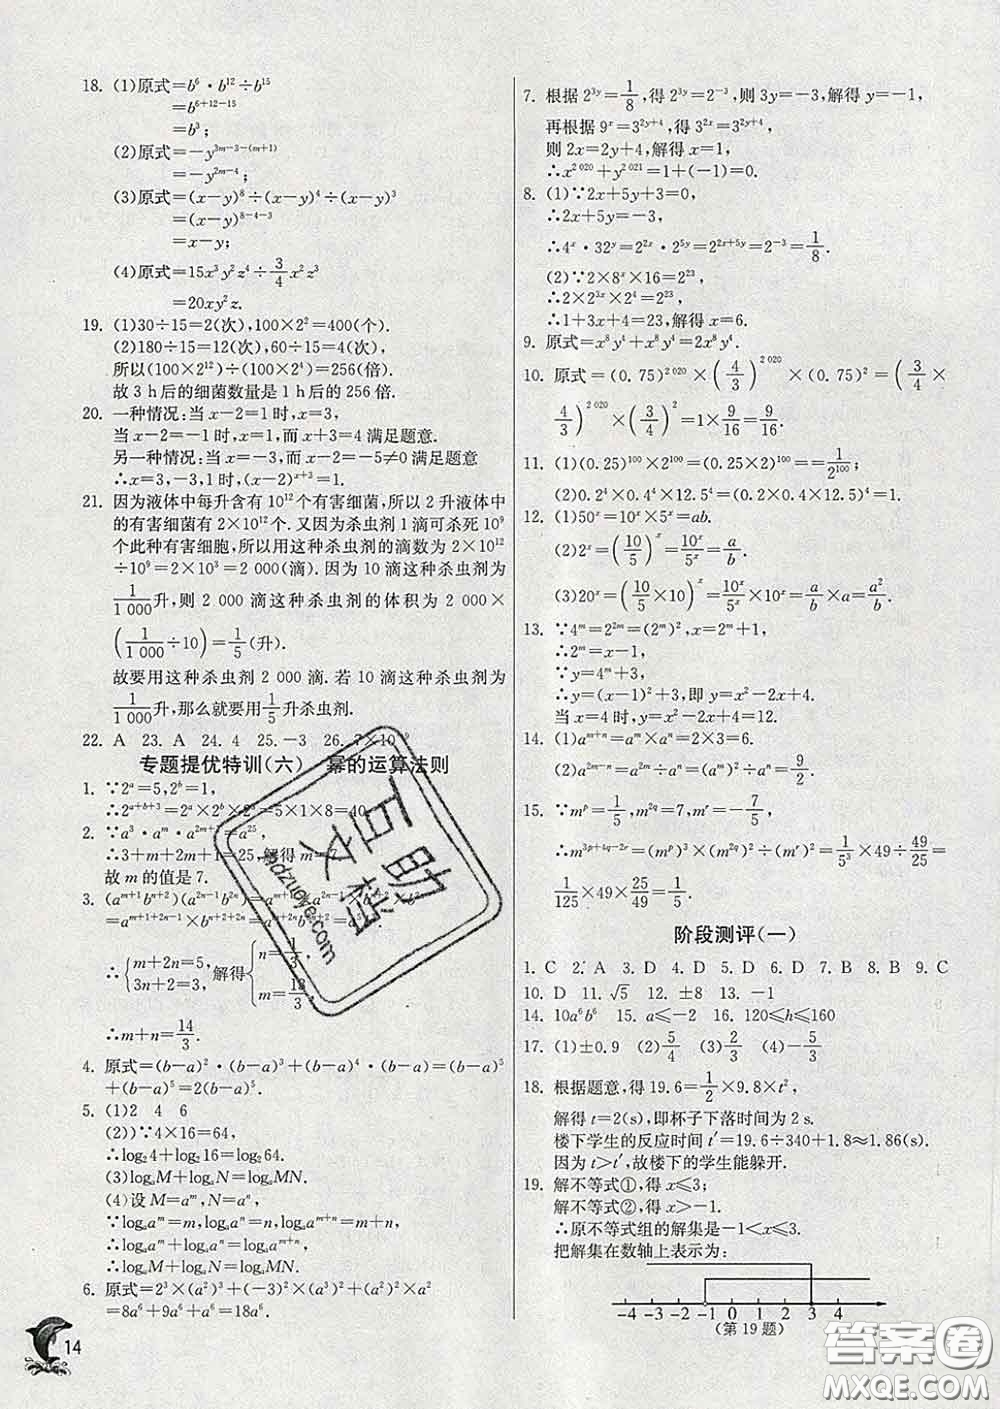 18. (1)原式=b⁶·b¹²÷b¹⁵
=b⁶⁺¹²⁻¹⁵
=b³;
(2)原式=-y³ᵐ⁻³⁻⁽ᵐ⁺¹⁾
=-y²ᵐ⁻⁴;
(3)原式=(x-y)⁸÷(x-y)⁴÷(x-y)³
=(x-y)⁸⁻⁴⁻³
=x-y;
(4)原式=15x³y²z⁴÷3/4x²z³
=20xy²z.
19. (1)30÷15=2(次),100×2²=400(个).
(2)180÷15=12(次),60÷15=4(次),
所以(100×2¹²)÷(100×2⁴)=256(倍).
故3 h后的细菌数量是1 h后的256倍.
20. 一种情况:当x-2=1时,x=3,
当x-2=-1时,x=1,而x+3=4满足题意.
另一种情况:当x=-3,而x-2=-5≠0满足题意
∴x=-3,3,1时,(x-2)ˣ⁺³=1.
21. 因为液体中每升含有10¹²个有害细菌,所以2升液体中
的有害细菌有2×10¹²个.又因为杀虫剂1滴可杀死10⁹
个此种有害细胞,所以用这种杀虫剂的滴数为2×10¹²
÷10⁹=2×10³=2 000(滴).因为10滴这种杀虫剂为
1/1 000升,则2 000滴这种杀虫剂的体积为2 000×
(1/1 000÷10)=1/5(升).
故要用这种杀虫剂2 000滴.若10滴这种杀虫剂为
1/1 000升,那么就要用1/5升杀虫剂.
22. A 23. A 24. 4 25. -3 26. 7×10⁻⁹
专题提优特训(六) 幂的运算法则
1. ∵2ᵃ=5,2ᵇ=1,
∴2ᵃ⁺ᵇ⁺³=2ᵃ×2ᵇ×2³=5×1×8=40.
2. ∵a³·aᵐ·a²ᵐ⁺¹=a²⁵,
∴3+m+2m+1=25,解得m=7.
故m的值是7.
3. (aᵐ⁺¹bⁿ⁺²)(a²ⁿ⁻¹b²ⁿ)=aᵐ⁺¹
=aᵐ⁺¹⁺²ⁿ⁻¹×bⁿ⁺²⁺²ⁿ=
∴{m+2n=5, 3n+2=3, 解得{n=1/3, m=13/3,
∴m+n=14/3.
4. 原式=(b-a)²·(b-a)³+(b-a)⁴·(b-a)-(b-a)⁵
+(b-a)⁵=2(b-a)⁵.
5. (1)2 4 6
(2))∵4×16=64,
∴log₂4+log₂16=log₂64.
(3)logₐM+logₐN=logₐMN.
(4)设M=aᵐ,N=aⁿ,
∵logₐaᵐ=m,logₐaⁿ=n,logₐaᵐ⁺ⁿ=m+n,
∴logₐaᵐ+logₐaⁿ=logₐaᵐ⁺ⁿ,
∴logₐM+logₐN=logₐMN.
6. 原式=2³×(a²)³+(-3)²×(a³)²+(a²)²×a²
=8a⁶+9a⁶+a⁶=18a⁶.
14
7. 根据2³ʸ=1/8,得2³ʸ=2⁻³,则3y=-3,解得y=-1,
再根据9ˣ=3²ʸ⁺⁴,得3²ˣ=3²ʸ⁺⁴,
则2x=2y+4,解得x=1,
∴x²⁰²⁰+y²⁰²¹=1+(-1)=0.
8. (1)∵2x+5y+3=0,
∴2x+5y=-3,
∴4ˣ·32ʸ=2²ˣ·2⁵ʸ=2²ˣ⁺⁵ʸ=2⁻³=1/8.
(2)∵2×8ˣ×16=2²³,
∴2×2³ˣ×2⁴=2²³,
∴1+3x+4=23,解得x=6.
9. 原式=x⁸y⁴+x⁸y⁴=2x⁸y⁴.
10. 原式=(0.75)²⁰²⁰×(4/3)²⁰²⁰×(0.75)²=(3/4×
4/3)²⁰²⁰×(3/4)²=1×9/16=9/16.
11. (1)(0.25)¹⁰⁰×2¹⁰⁰=(0.5)¹⁰⁰==1/2¹⁰⁰;
(2)0.2⁴×0.4⁴×12.5⁴=(0.2×0.4×12.5)⁴=1.
12. (1)50ˣ=10ˣ×5ˣ=ab.
(2)2ˣ=(10/5)ˣ=10ˣ/5ˣ=a/b.
(3)20ˣ=(10/5×10)ˣ=10ˣ/5ˣ×10ˣ=a/b×a=a²/b.
13. ∵4ᵐ=2²ᵐ=(2ᵐ)²,x=2ᵐ+1,
∴2ᵐ=x-1,
∵y=4ᵐ+3,
∴y=(x-1)²+3=x²-2x+4.
当x=4时,y=x²-2x+4=12.
14. (1)aᵐ⁺ⁿ=aᵐ×aⁿ=2×3=6.
(2)a²ᵐ⁻ⁿ=a²ᵐ÷aⁿ=(aᵐ)²÷aⁿ=9/2.
15. ∵mᵖ=1/5,m²ᑫ=7,mʳ=-7/5,
∴m³ᵖ⁺⁴ᑫ⁻²ʳ=(mᵖ)³×(m²ᑫ)²÷(mʳ)²=1/5³×49÷49/25=
1/125×49×25/49=1/5.
阶段测评(一)
1. C 2. A 3. D 4. D 5. D 6. D 7. B 8. B 9. C
10. D 11. √5 12. ±8 13. -1
14. 10a⁶b⁶ 15. a≤-2 16. 120≤h≤160
17. (1)±0.9 (2)5/4 (3)2/3 (4)-5/3
18. 根据题意,得19.6=1/2×9.8×t²,
解得t=2(s),即杯子下落时间为2 s.
楼下学生的反应时间t′=19.6÷340+1.8≈1.86(s).
因为t>t′,故楼下的学生能躲开.
19. 解不等式①,得x≤3;
解不等式②,得x>-1.
∴原不等式组的解集是-1<x≤3.
把解集在数轴上表示为:
-4 -3 -2 -1 0 1 2 3 4
(第19题)
互助文档
hdzuoye.com
答案圈
MXQE.COM